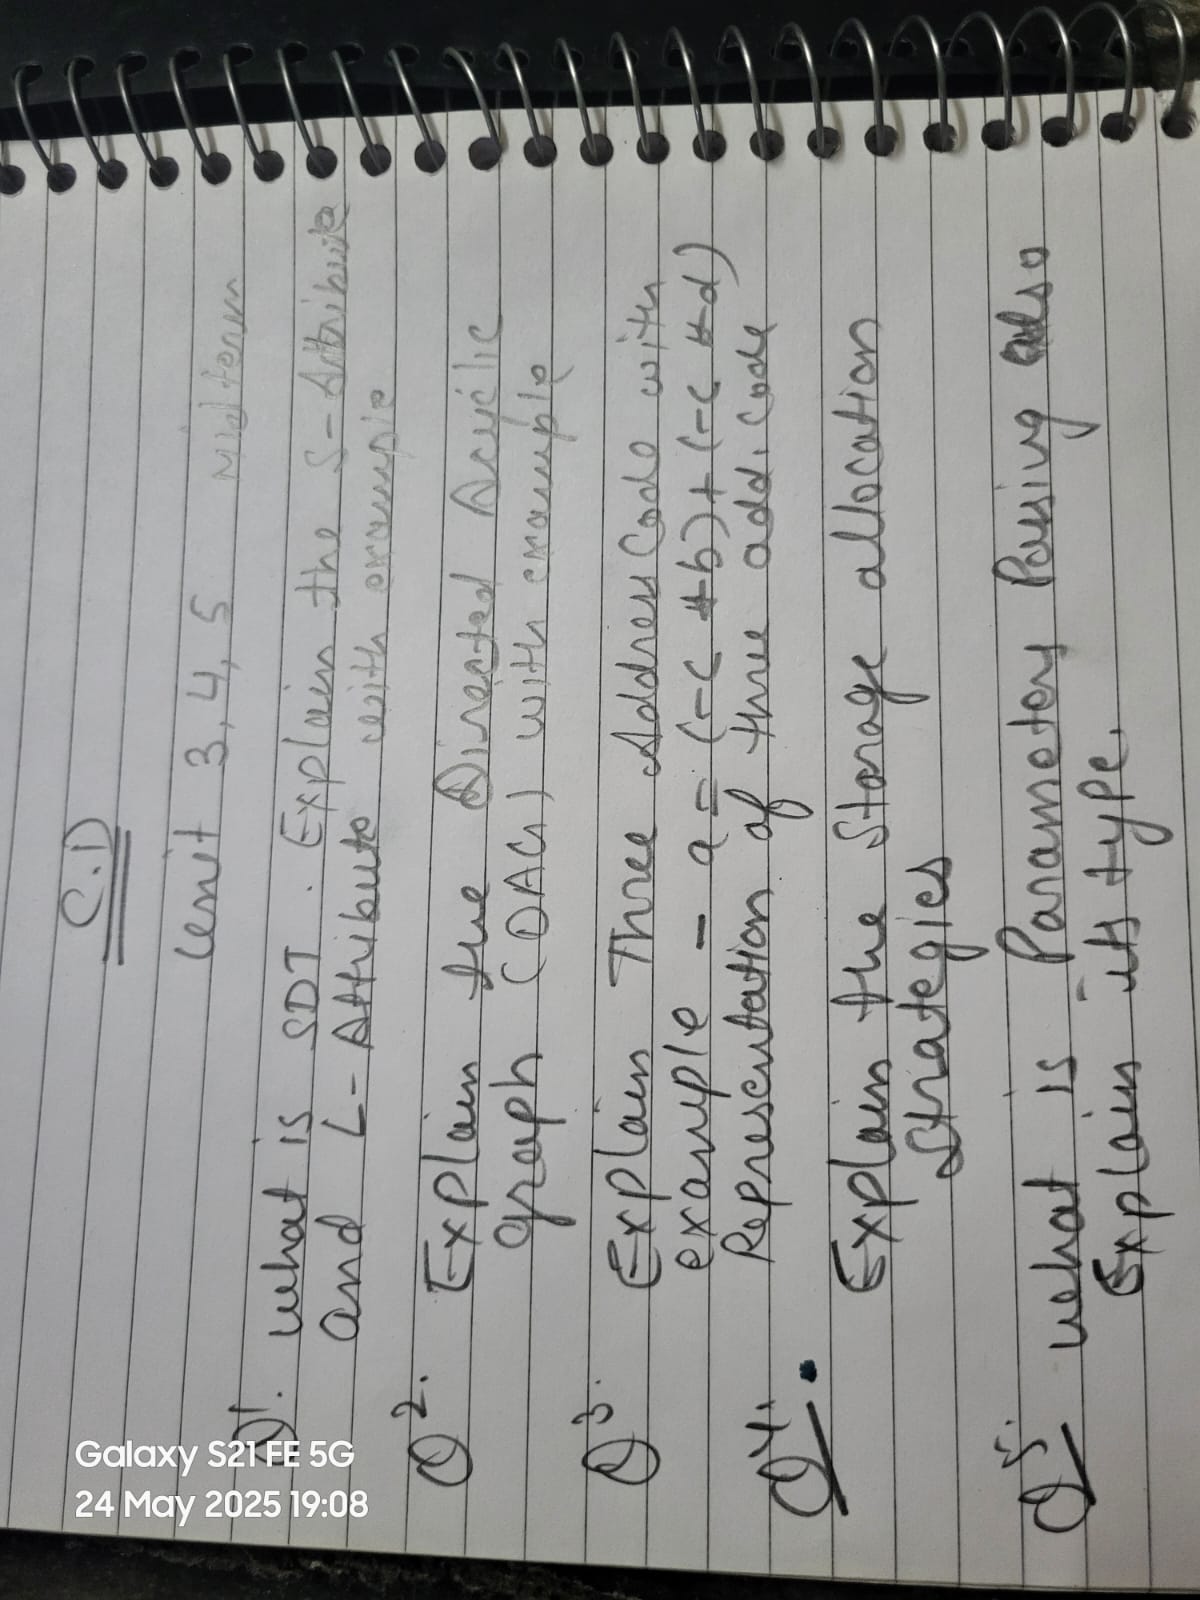 C.D
Unit 3, 4, 5 Midterm
Q1. what is SDT. Explain the S-Attribute
and L-Attribute with example
Q2. Explain the Directed Acyclic
graph (DAG) with example
Q3. Explain Three Address Code with
example - a = (-c * b) + (-c * d)
Representation of three add. code
Q4. Explain the Storage allocation
strategies
Q5. what is Parameter Passing also
Explain its type.
Galaxy S21 FE 5G
24 May 2025 19:08